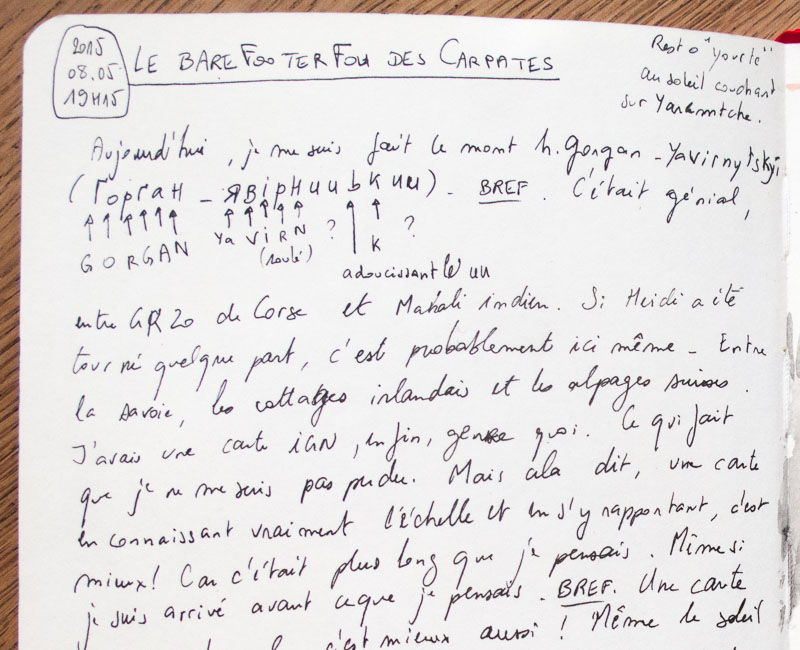 2015
08.05
19H15
LE BAREFOOTERFOU DES CARPATES
Resto "yourte"
au soleil couchant
sur Yaremtche.
Aujourd'hui, je me suis fait le mont h. Gorgan - Yavirnytskyi
(Горган - ЯВірНииьк ии). BREF. C'était génial,
GORGAN Ya ViRN ? K ?
(roulé)
adoucissant le un
entre GR20 de Corse et Mahali indien. Si Heidi a été
tourné quelque part, c'est probablement ici même - Entre
la Savoie, les cottages irlandais et les alpages suisses.
J'avais une carte iGN, enfin, genre quoi. Ce qui fait
que je ne me suis pas perdu. Mais cela dit, une carte
en connaissant vraiment l'échelle et en s'y rapportant, c'est
mieux! Car c'était plus long que je pensais. Même si
je suis arrivé avant ce que je pensais. BREF. Une carte
c'est mieux aussi ! Même le soleil